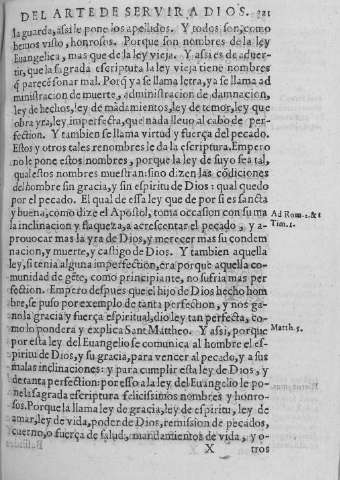 DEL ARTE DE SERVIR A DIOS. 321
la guarda, assi le pone los apellidos. Y todos son, como
hemos visto, honrosos. Porque son nombres de la ley
Euangelica, mas que de la ley vieja. Y assi es de aduer-
tir, que la sagrada escriptura la ley vieja tiene nombres
q̃ parecē sonar mal. Porq̃ ya se llama letra, ya se llama ad
ministracion de muerte, administracion de damnacion,
ley de hechos, ley de mãdamientos, ley de temor, ley que
obra yra, ley imperfecta, que nada lleuo al cabo de per-
fection. Y tambien se llama virtud y fuerça del pecado.
Estos y otros tales renombres le da la escriptura. Empero
no le pone estos nombres, porque la ley de suyo sea tal,
qual estos nombres muestran: sino dizen las cõdiciones
del hombre sin gracia, y sin espiritu de Dios: qual quedo
por el pecado. El qual de essa ley que de por si es sancta
y buena, como dize el Apostol, toma occasion con su ma
la inclinacion y flaqueza, a acrescentar el pecado, y a
prouocar mas la yra de Dios, y merecer mas su condem
nacion, y muerte, y castigo de Dios. Y tambien aquella
ley, si tenia alguna imperfection, era porque aquella co-
munidad de gẽte, como principiante, no sufria mas per
fection. Empero despues que el hijo de Dios hecho hom
bre, se puso por exemplo de tanta perfection, y nos ga-
no la gracia y fuerça espiritual, dio ley tan perfecta, co-
mo lo pondera y explica Sant Mattheo. Y assi, porque
por esta ley del Euangelio se comunica al hombre el es-
piritu de Dios, y su gracia, para vencer al pecado, y a sus
malas inclinaciones: y para cumplir esta ley de Dios, y
de tanta perfection: por esso a la ley del Euangelio le po-
ne la sagrada escriptura felicissimos nombres y honro-
sos. Porque la llama ley de gracia, ley de espiritu, ley de
amar, ley de vida, poder de Dios, remission de pecados,
cuerno, o fuerça de salud, mandamientos de vida, y o-
X tros
Ad Rom. 2. &
Tim. 1.
Matth. 5.